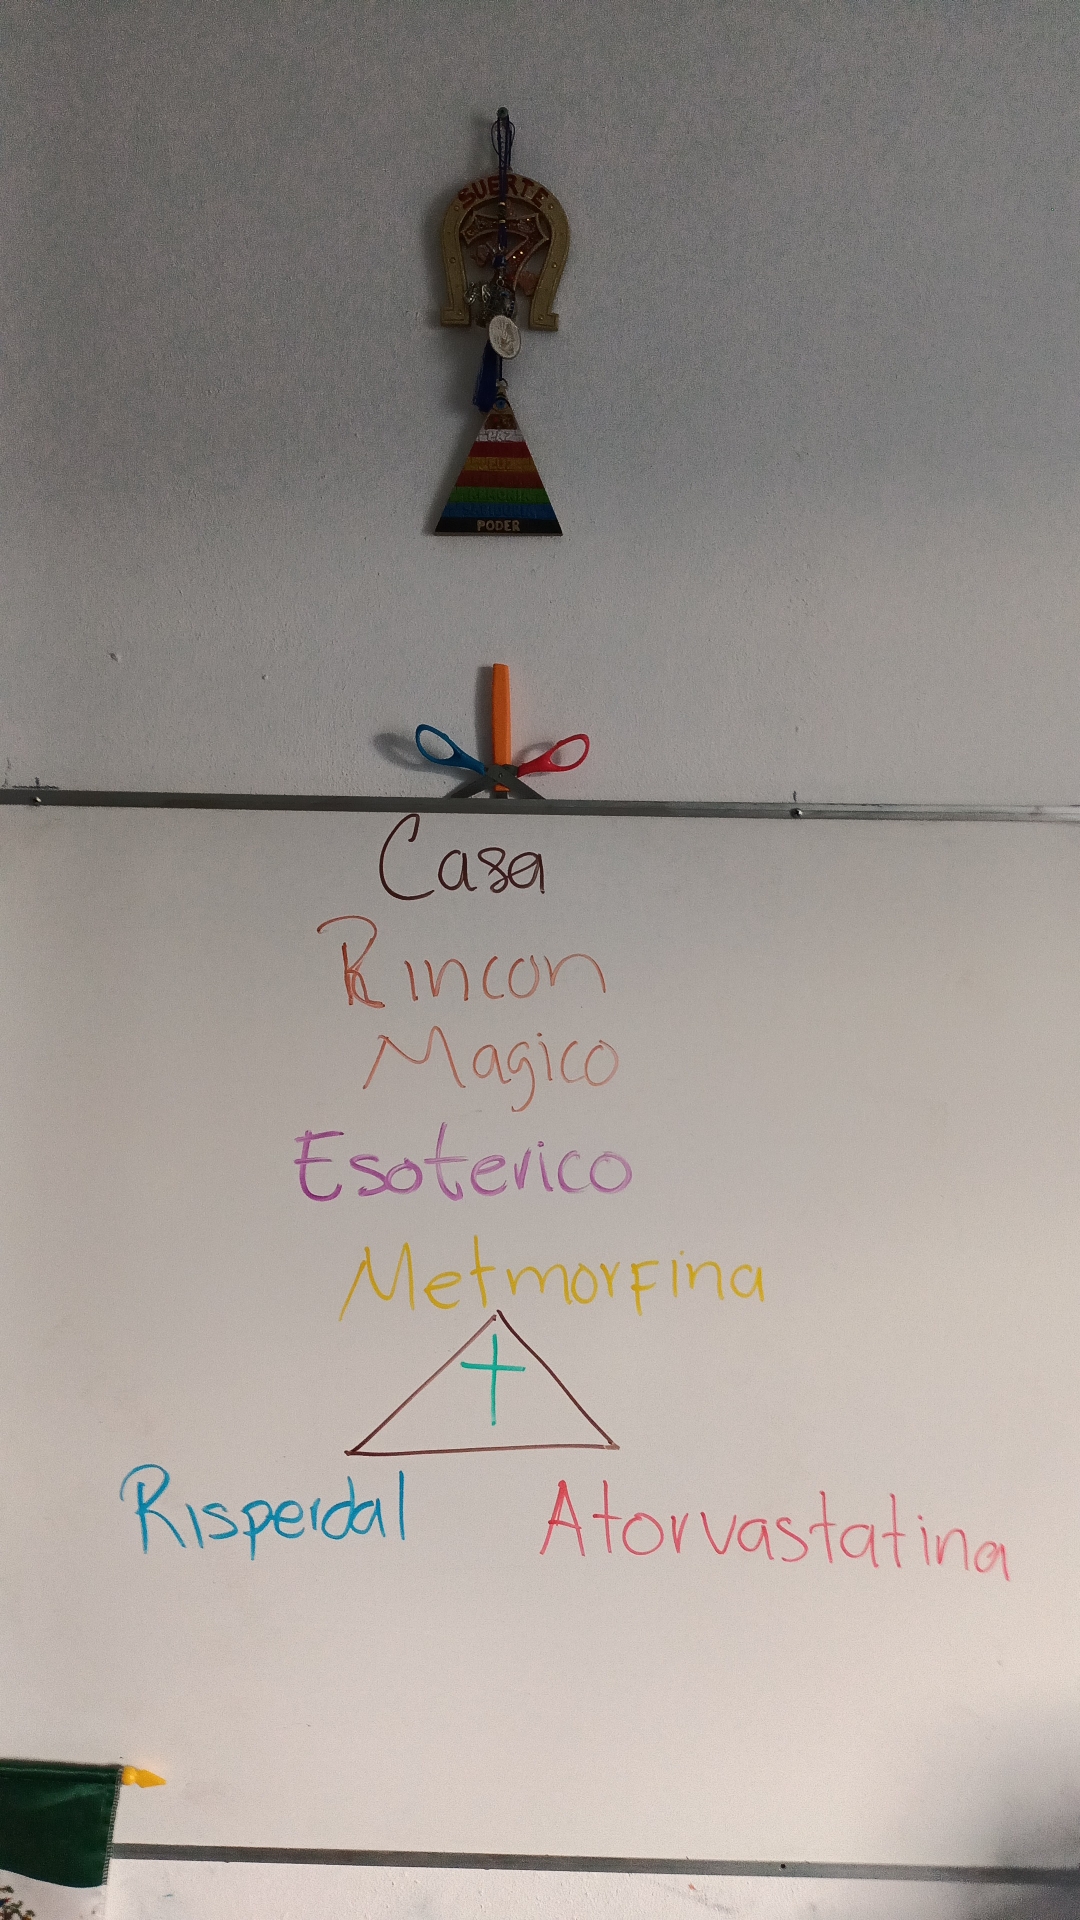 SUERTE
PODER
Casa
Rincon
Magico
Esoterico
Metmorfina
Risperdal
Atorvastatina